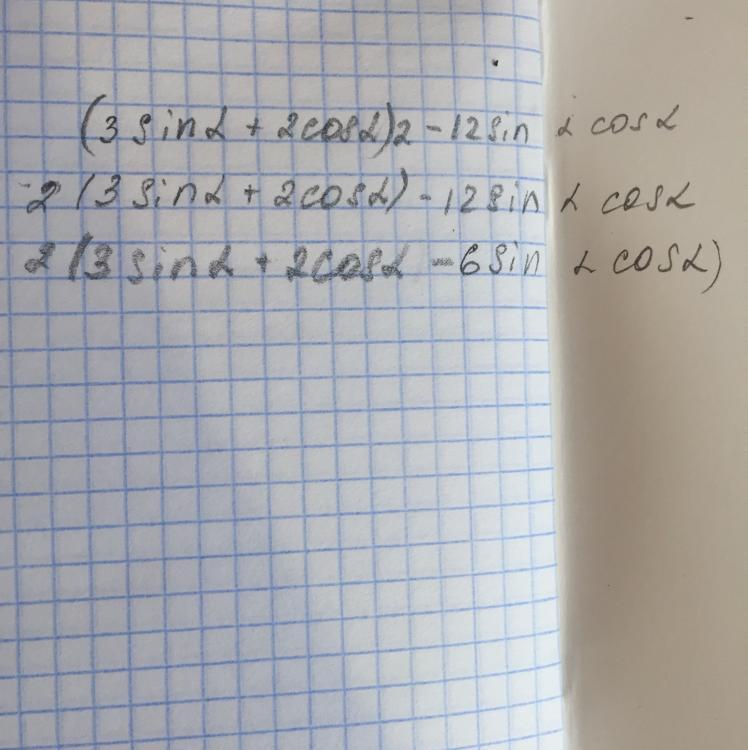 (3 sinα + 2cosα)2 - 12sin α cosα
2 (3 sinα + 2cosα) - 12sin α cosα
2 (3 sinα + 2cosα - 6sin α cosα)